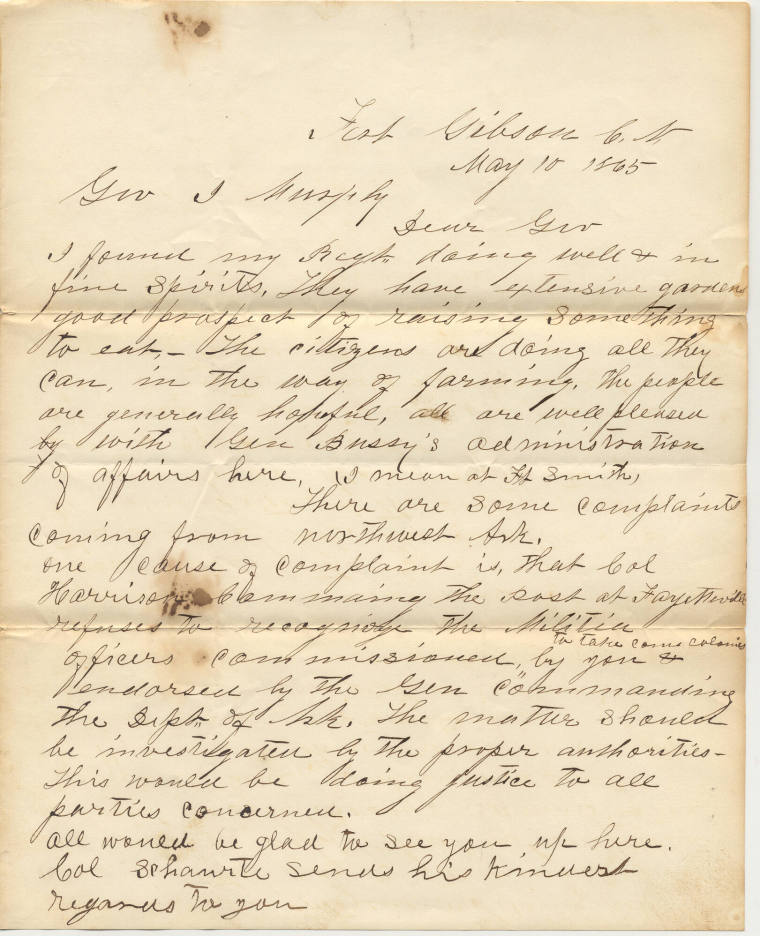 Fort Gibson C. N
May 10 1865
Gov I Murphy
Dear Gov
I found my Regt. doing well & in
fine spirits. They have extensive gardens
good prospect of raising something
to eat. - The citizens are doing all they
can, in the way of farming. The people
are generally hopeful, all are well pleased
by with Gen Bussy's administration
of affairs here, I mean at Ft Smith,
There are some complaints
coming from northwest Ark.
one cause of complaint is, that Col
Harrison Commaing the post at Fayetteville
refuses to recognize the Militia
to take come colonies
officers commissioned, by you &
endorsed by the Gen Commanding
the Dept. of Ark. The matter should
be investigated by the proper authorities -
This would be doing justice to all
parties concerned.
all would be glad to see you up here.
Col sends his kindest
regards to you